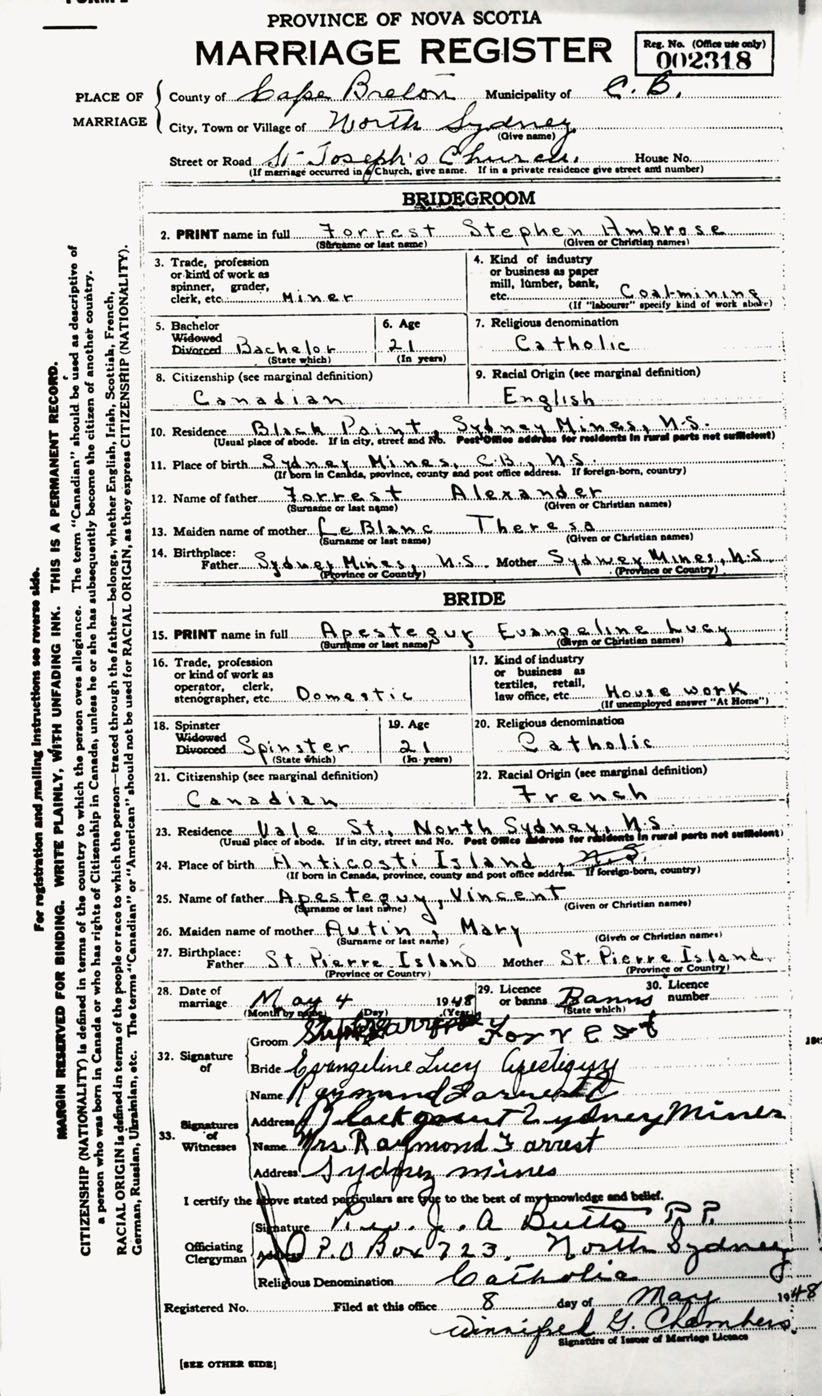 PROVINCE OF NOVA SCOTIA
MARRIAGE REGISTER
Reg. No. (Office use only)
002318
PLACE OF MARRIAGE
County of Cape Breton Municipality of C.B.
City, Town or Village of North Sydney
(Give name)
Street or Road St Joseph's Church. House No.
(If marriage occurred in a Church, give name. If in a private residence give street and number)
BRIDEGROOM
2. PRINT name in full Forrest Stephen Ambrose
(Surname or last name) (Given or Christian names)
3. Trade, profession
or kind of work as
spinner, grader,
clerk, etc. Miner
4. Kind of industry
or business as paper
mill, lumber, bank,
etc. Coalmining
(If "labourer" specify kind of work above)
5. Bachelor
Widowed
Divorced Bachelor
(State which)
6. Age
21
(In years)
7. Religious denomination
Catholic
8. Citizenship (see marginal definition)
Canadian
9. Racial Origin (see marginal definition)
English
10. Residence Black Point, Sydney Mines, N.S.
(Usual place of abode. If in city, street and No. Post Office address for residents in rural parts not sufficient)
11. Place of birth Sydney Mines, C.B., N.S.
(If born in Canada, province, county and post office address. If foreign-born, country)
12. Name of father Forrest Alexander
(Surname or last name) (Given or Christian names)
13. Maiden name of mother LeBlanc Theresa
(Surname or last name) (Given or Christian names)
14. Birthplace:
Father Sydney Mines, N.S. Mother Sydney Mines, N.S.
(Province or Country) (Province or Country)
BRIDE
15. PRINT name in full Apesteguy Evangeline Lucy
(Surname or last name) (Given or Christian names)
16. Trade, profession
or kind of work as
operator, clerk,
stenographer, etc. Domestic
17. Kind of industry
or business as
textiles, retail,
law office, etc. House work
(If unemployed answer "At Home")
18. Spinster
Widowed
Divorced Spinster
(State which)
19. Age
21
(In years)
20. Religious denomination
Catholic
21. Citizenship (see marginal definition)
Canadian
22. Racial Origin (see marginal definition)
French
23. Residence Vale St., North Sydney, N.S.
(Usual place of abode. If in city, street and No. Post Office address for residents in rural parts not sufficient)
24. Place of birth Anticosti Island,
(If born in Canada, province, county and post office address. If foreign-born, country)
25. Name of father Apesteguy, Vincent
(Surname or last name) (Given or Christian names)
26. Maiden name of mother Autin, Mary
(Surname or last name) (Given or Christian names)
27. Birthplace:
Father St. Pierre Island Mother St. Pierre Island
(Province or Country) (Province or Country)
28. Date of
marriage May 4 1948
(Month by name) (Day) (Year)
29. Licence
or banns Banns
(State which)
30. Licence
number
32. Signature of
Groom Forrest
Bride Evangeline Lucy Apesteguy
33. Signatures of Witnesses
Name Raymond Farrest
Address Blackpoint Sydney Mines
Name Mrs Raymond Farrest
Address Sydney mines
I certify the above stated particulars are true to the best of my knowledge and belief.
Officiating Clergyman
Signature Rev. J. A Butts P.P.
Address P.O Box 723, North Sydney
Religious Denomination Catholic
Registered No. Filed at this office 8 day of May 1948
Winnifred G. Chambers
Signature of Issuer of Marriage Licence
[SEE OTHER SIDE]
For registration and mailing instructions see reverse side.
MARGIN RESERVED FOR BINDING. WRITE PLAINLY, WITH UNFADING INK. THIS IS A PERMANENT RECORD.
CITIZENSHIP (NATIONALITY) is defined in terms of the country to which the person owes allegiance. The term "Canadian" should be used as descriptive of
a person who was born in Canada or who has rights of Citizenship in Canada, unless he or she has subsequently become the citizen of another country.
RACIAL ORIGIN is defined in terms of the people or race to which the person—traced through the father—belongs, whether English, Irish, Scottish, French,
German, Russian, Ukrainian, etc. The terms "Canadian" or "American" should not be used for RACIAL ORIGIN, as they express CITIZENSHIP (NATIONALITY).